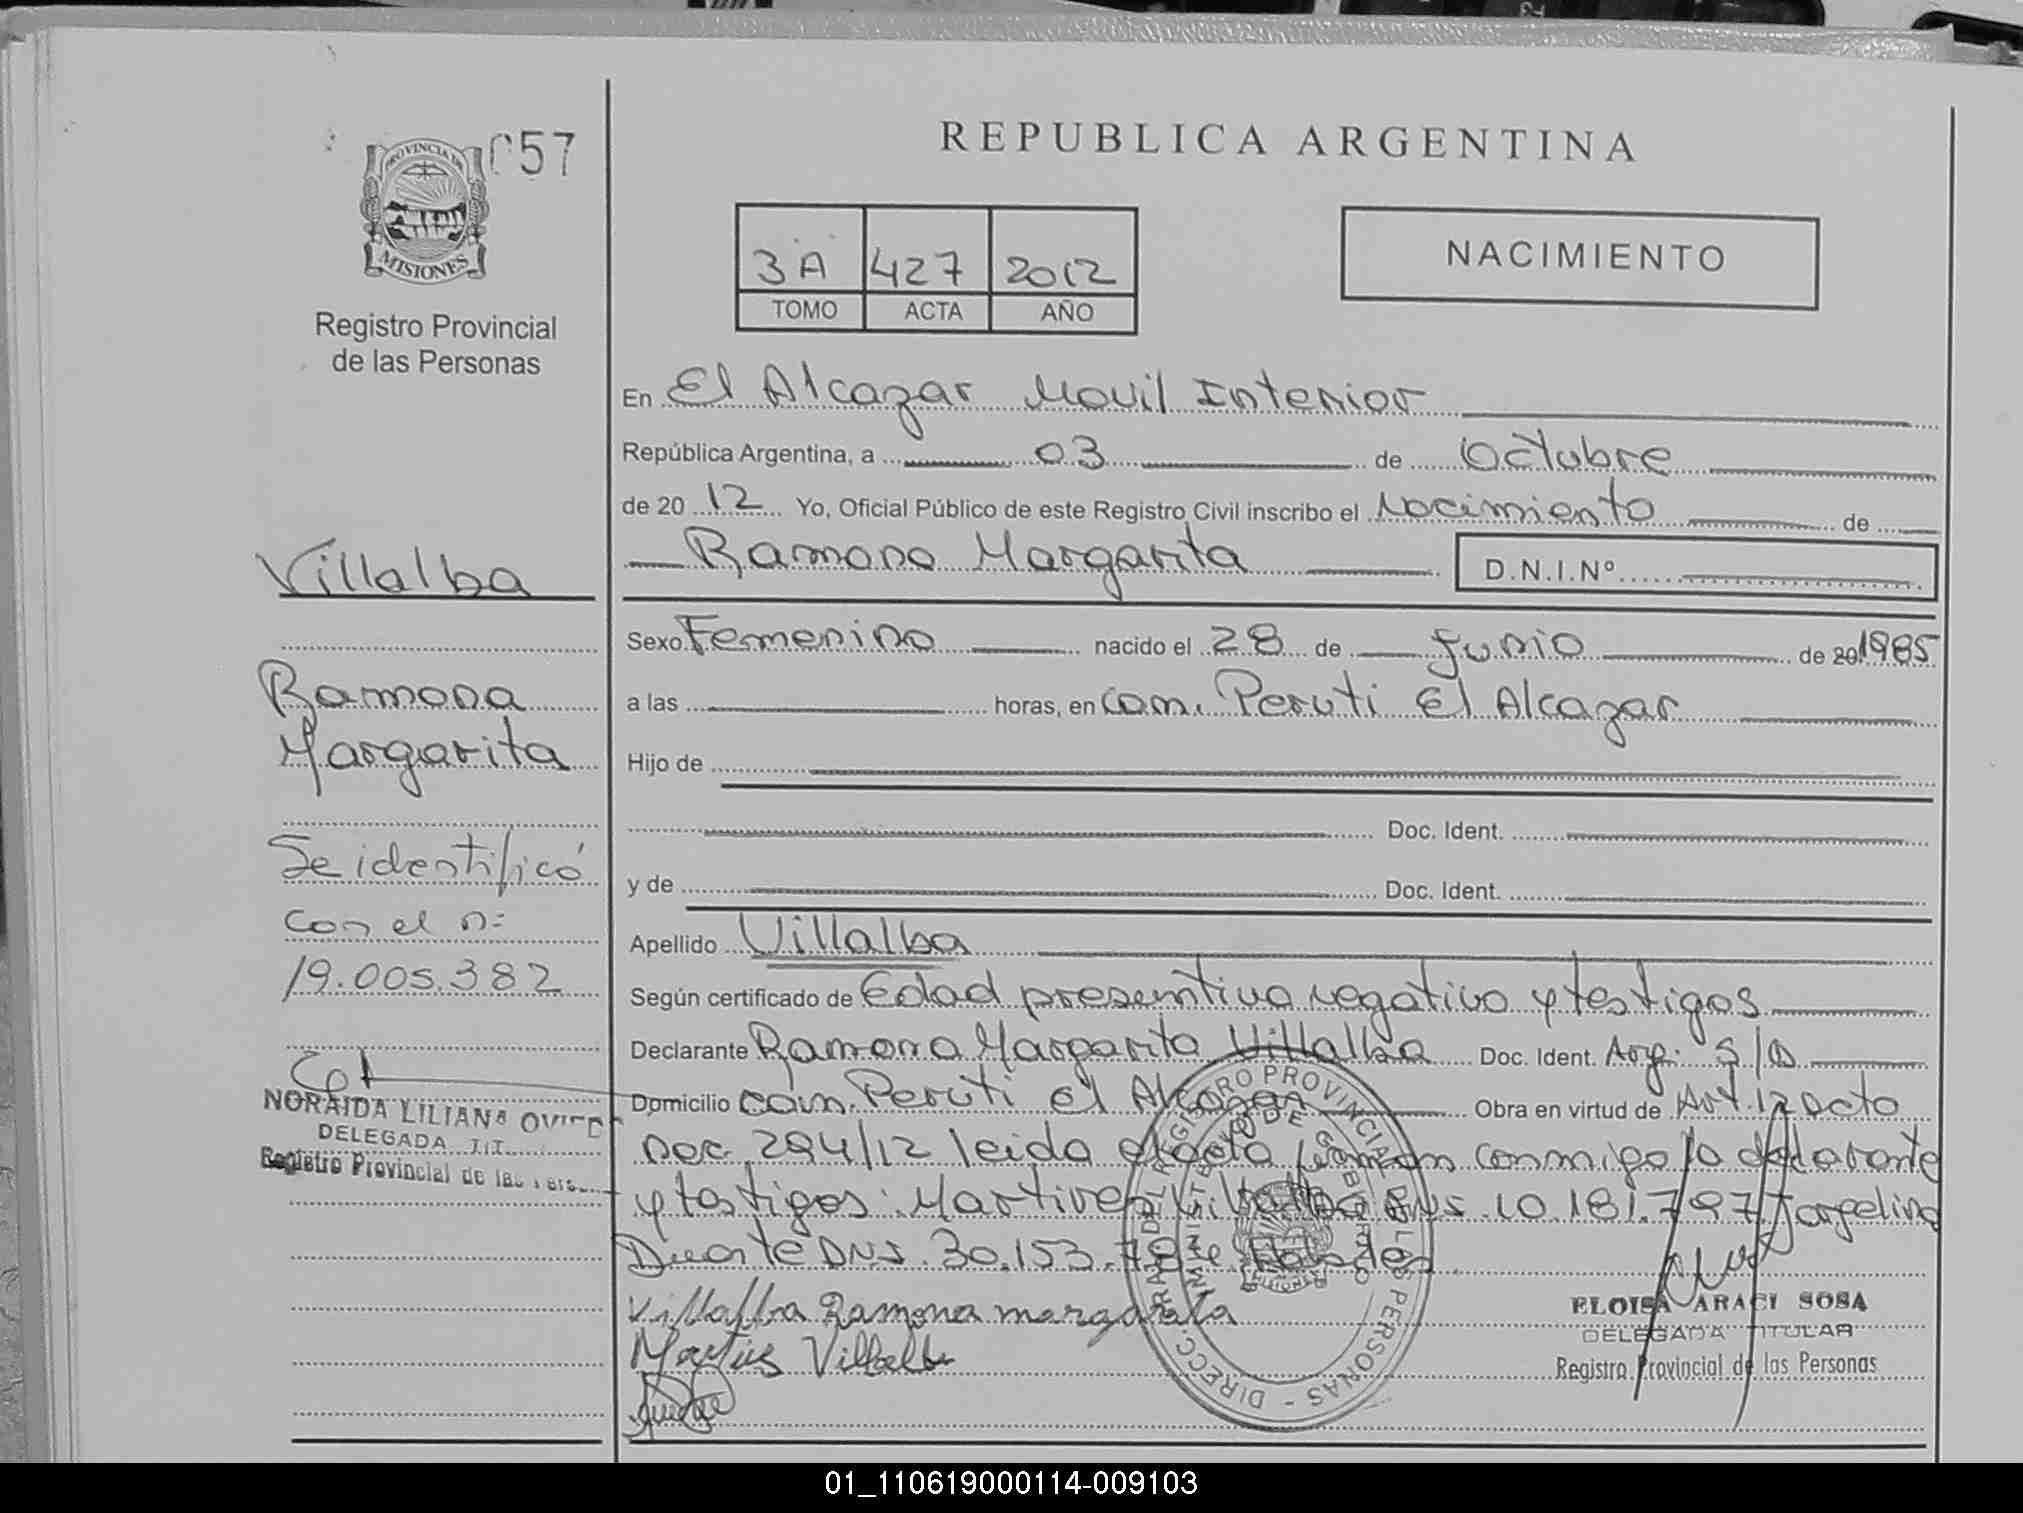 057
PROVINCIA DE
MISIONES
Registro Provincial
de las Personas
REPUBLICA ARGENTINA
3A 427 2012
TOMO ACTA AÑO
NACIMIENTO
En El Alcazar Movil Interior
República Argentina, a 03 de Octubre
de 20 12 Yo, Oficial Público de este Registro Civil inscribo el Nacimiento de
Ramona Margarita D.N.I.Nº
Sexo Femenino nacido el 28 de Junio de 20 1985
a las horas, en Com. Peruti El Alcazar
Hijo de
Doc. Ident.
y de Doc. Ident.
Apellido Villalba
Según certificado de Edad presuntiva negativo y testigos
Declarante Ramona Margarita Villalba Doc. Ident. Arg.
Domicilio Com. Peruti El Alcazar Obra en virtud de Art.
Dec. 294/12 leida el acta firman conmigo la declarante
y testigos: Villalba 10.181.797
Duarte DNI. 30.153.
Villalba Ramona margarita
Villalba
ELOISA ARACI SOSA
DELEGADA TITULAR
Registro Provincial de las Personas
Villalba
Ramona
Margarita
Se identificó
con el n:
19.005.382
NORAIDA LILIANA
DELEGADA
Registro Provincial de las
REGISTRO PROVINCIAL DE LAS PERSONAS
MINISTERIO DE GOBIERNO
01_110619000114-009103